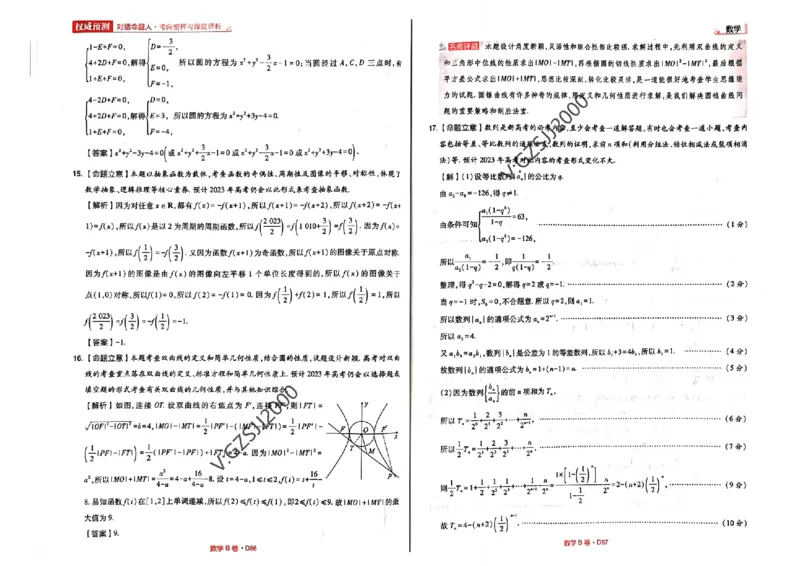 权威预测 对话命题人·考向密押与深度评析
{1-E+F=0, 4+2D+F=0, 1+E+F=0, 解得 {D=-3/2, E=0, F=-1, 所以圆的方程为 x²+y²-3/2x-1=0;当圆经过 A,C,D 三点时,有
{4-2D+F=0, 4+2D+F=0, 1+E+F=0, 解得 {D=0, E=3, F=-4, 所以圆的方程为 x²+y²+3y-4=0.
【答案】x²+y²-3y-4=0(或 x²+y²+3/2x-1=0 或 x²+y²-3/2x-1=0 或 x²+y²+3y-4=0).
15.【命题立意】本题以抽象函数为载体,考查函数的奇偶性、周期性及图像的平移、对称性,体现了
数学抽象、逻辑推理等核心素养. 预计 2023 年高考仍会以此形式来考查抽象函数.
【解析】因为对任意 x∈R,都有 f(x)=-f(x+1),所以 f(x+1)=-f(x+2),所以 f(x+2)=-f(x+
1)=f(x),所以 f(x)是以 2 为周期的周期函数,所以 f(2 023/2)=f(1 010+3/2)=f(3/2). 因为 f(x)=
-f(x+1),所以 f(1/2)=-f(3/2). 又因为函数 f(x+1)为奇函数,所以 f(x+1)的图像关于原点对称.
因为 f(x+1)的图像是由 f(x)的图像向左平移 1 个单位长度得到的,所以 f(x)的图像关于
点(1,0)对称,所以 f(1)=0,所以 f(2)=-f(1)=0. 因为 f(1/2)+f(2)=1,所以 f(1/2)=1,所以
f(2 023/2)=f(3/2)=-f(1/2)=-1.
【答案】-1.
16.【命题立意】本题考查双曲线的定义和简单几何性质,结合圆的性质,试题设计新颖. 高考对双曲
线的考查重点落在双曲线的定义、标准方程和简单几何性质上. 预计 2023 年高考仍会以选择题或
填空题的形式考查有关双曲线的几何性质,并与其他知识综合.
【解析】如图,连接 OT. 设双曲线的右焦点为 F′,连接 PF′,则|FT|=
√(|OF|²-|OT|²)=b=4,|MO|-|MT|=1/2|PF′|-(|MF|-|FT|)=1/2|PF′|-
(1/2|PF|-|FT|)=1/2(|PF′|-|PF|)+|FT|=4-a. 因为|MO|²-|MT|²=
a²,所以|MO|+|MT|=a²/(4-a)=4-a+16/(4-a)-8. 设 t=4-a,1≤t≤2,f(t)=t+16/t-
8. 易知函数 f(t)在[1,2]上单调递减,所以 f(2)≤f(t)≤f(1),即 2≤f(t)≤9. 故|MO|+|MT|的最
大值为 9.
【答案】9.
y F O F′ x T M P
数学 B 卷·D86
V:GZSJJ2000
数学
名师评题 本题设计角度新颖,灵活性和综合性都比较强. 求解过程中,先利用双曲线的定义
和三角形中位线的性质求出|MO|-|MT|,再根据圆的切线性质求出|MO|²-|MT|²,最后根据
平方差公式求出|MO|+|MT|,思想比较深刻,转化比较灵活,是一道能很好地考查学生思维能
力的试题. 圆锥曲线有许多神奇的规律,用定义和几何性质进行求解,是我们解决圆锥曲线问
题的重要策略和制胜法宝.
17.【命题立意】数列是新高考的必考内容,至少会考查一道解答题,有时也会考查一道小题,考查内
容包括等差、等比数列的通项公式,数列的证明,求前 n 项和(利用分组法、错位相减法及裂项相消
法)等. 预计 2023 年高考对此内容的考查形式变化不大.
【解】(1)设等比数列{aₙ}的公比为 q.
由 a₂-a₈=-126,得 q≠1.
由条件可知 {a₁(1-q⁶)/(1-q)=63, a₂(1-q⁶)=-126, (1 分)
所以 a₁/(a₂(1-q))=-1/2,即 1/(q(1-q))=-1/2.
整理,得 q²-q-2=0,解得 q=2 或 q=-1. (2 分)
当 q=-1 时,S₆=0,不合题意. 所以 q=2,则 a₁=1.
所以数列{aₙ}的通项公式为 aₙ=2ⁿ⁻¹. (3 分)
所以 a₃=4.
又 a₁b₄=a₃b₁,数列{bₙ}是公差为 1 的等差数列,所以 b₁+3=4b₁,所以 b₁=1. (4 分)
故数列{bₙ}的通项公式为 bₙ=1+(n-1)=n. (5 分)
(2)因为数列{bₙ/aₙ}的前 n 项和为 Tₙ,
所以 Tₙ=1/2⁰+2/2¹+3/2²+…+n/2ⁿ⁻¹, (6 分)
所以 1/2Tₙ=1/2¹+2/2²+3/2³+…+n/2ⁿ, (7 分)
则 1/2Tₙ=1+1/2¹+1/2²+…+1/2ⁿ⁻¹-n/2ⁿ=1×[1-(1/2)ⁿ]/(1-1/2)-n/2ⁿ=2-(n+2)(1/2)ⁿ, (9 分)
故 Tₙ=4-(n+2)(1/2)ⁿ⁻¹. (10 分)
数学 B 卷·D87
V:GZSJJ2000